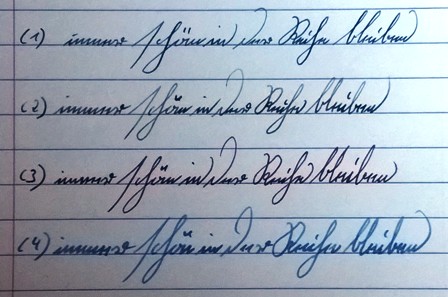 (1) immer schön in der Reihe bleiben
(2) immer schön in der Reihe bleiben
(3) immer schön in der Reihe bleiben
(4) immer schön in der Reihe bleiben